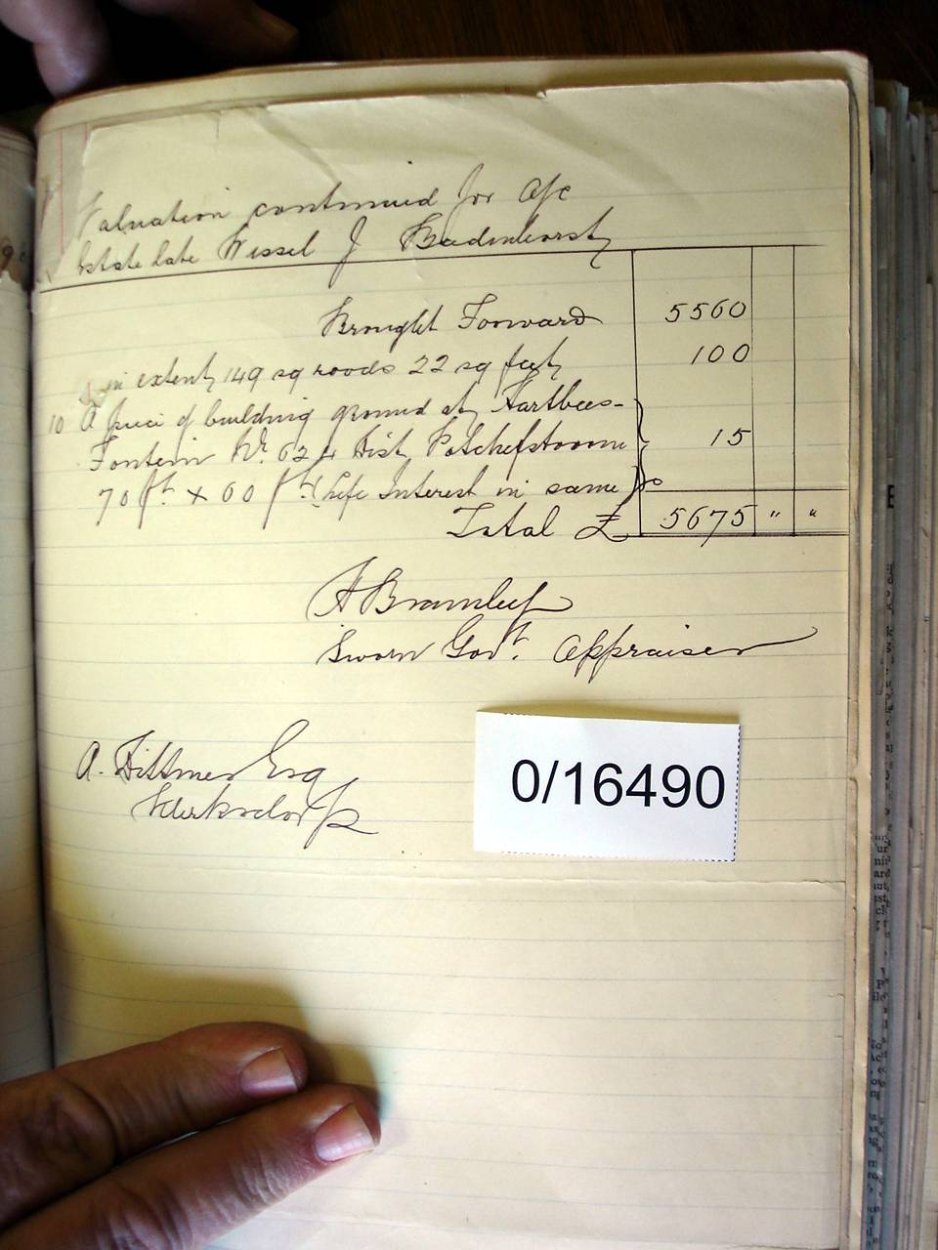 Valuation continued for A/c
Estate late Wessel J Badenhorst
Brought Forward 5560
in extent 149 sq roods 22 sq feet 100
10 A piece of building ground at Hartbees-
Fontein No. 624 Dist Potchefstroom 15
70 ft x 60 ft (Life Interest in same)
Total £ 5675 " "
A Bramley
Sworn Govt. Appraiser
A. Dittmer Esq
Klerksdorp
0/16490